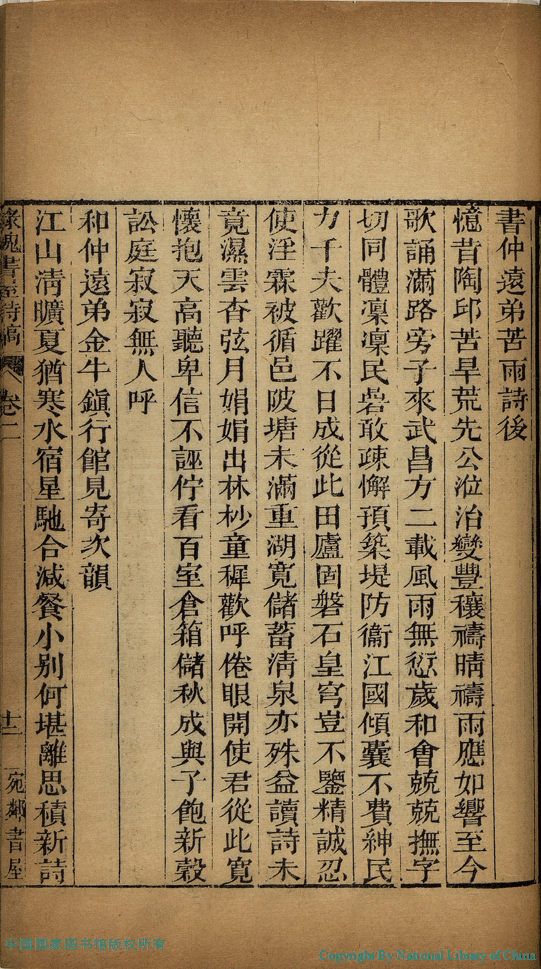 書仲遠弟苦雨詩後
憶昔陶邱苦旱荒先公涖治變豐穰禱晴禱雨應如響至今
歌誦滿路旁子來武昌方二載風雨無愆歲和會兢兢撫字
切同體凜凜民碞敢疎懈預築堤防衞江國傾囊不費紳民
力千夫歡躍不日成從此田廬固磐石皇穹豈不鑒精誠忍
使淫霖被循邑陂塘未滿重湖寬儲蓄清泉亦殊益讀詩未
竟濕雲杳弦月娟娟出林杪童穉歡呼倦眼開使君從此寬
懷抱天高聽卑信不誣佇看百室倉箱儲秋成與子飽新穀
訟庭寂寂無人呼
和仲遠弟金牛鎭行館見寄次韻
江山清曠夏猶寒水宿星馳合減餐小别何堪離思積新詩
槐書屋詩稿 卷二 十二 宛鄰書屋
中國國家图书馆版权所有
Copyright By National Library of China